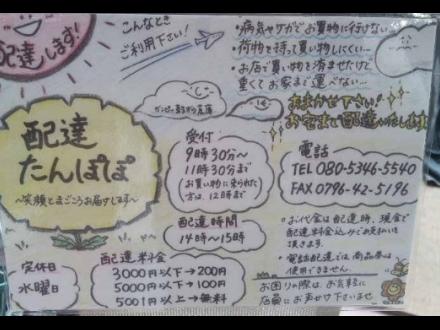 配達します!
こんなとき
ご利用下さい!
・病気やケガでお買物に行けない…
・荷物を持って買い物しにくい…
・お店で買い物を済ませたけど
重くてお家まで運べない…
おまかせ下さい!
お家まで配達いたします
配達
たんぽぽ
~笑顔とまごころお届けします~
受付
9時30分~
11時30分まで
(お買い物に来られた
方は、12時まで)
配達時間
14時~15時
電話
TEL 080-5346-5540
FAX 0796-42-5196
・お代金は配達時、現金で
配達料金込みでお支払いを
頂きます。
・電話配達では商品券は
使用できません。
お困りの際は、お気軽に
店員にお声せ下さいませ
定休日
水曜日
配達料金
3000円以下→200円
5000円以下→100円
5001円以上→無料